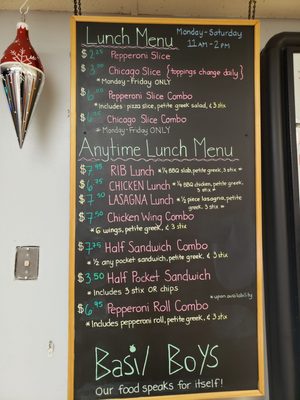 Lunch Menu
Monday - Saturday
11 AM - 2 PM
$2.25 Pepperoni Slice
Chicago Slice {toppings change daily}
* Monday-Friday ONLY
Pepperoni Slice Combo
* Includes: pizza slice, petite greek salad, & 3 stix
Chicago Slice Combo
* Monday-Friday ONLY
Anytime Lunch Menu
$7.95 RIB Lunch * 1/4 BBQ slab, petite greek, 3 stix *
$6.75 CHICKEN Lunch * 1/4 BBQ chicken, petite greek, 3 stix *
$7.50 LASAGNA Lunch * 1/2 piece lasagna, petite greek, 3 stix *
$7.50 Chicken Wing Combo
* 6 wings, petite greek, & 3 stix
$7.25 Half Sandwich Combo
* 1/2 any pocket sandwich, petite greek, & 3 stix
$3.50 Half Pocket Sandwich
* Includes 3 stix OR chips
* upon availability
$6.95 Pepperoni Roll Combo
* Includes pepperoni roll, petite greek, & 3 stix
Basil Boys
Our food speaks for itself!